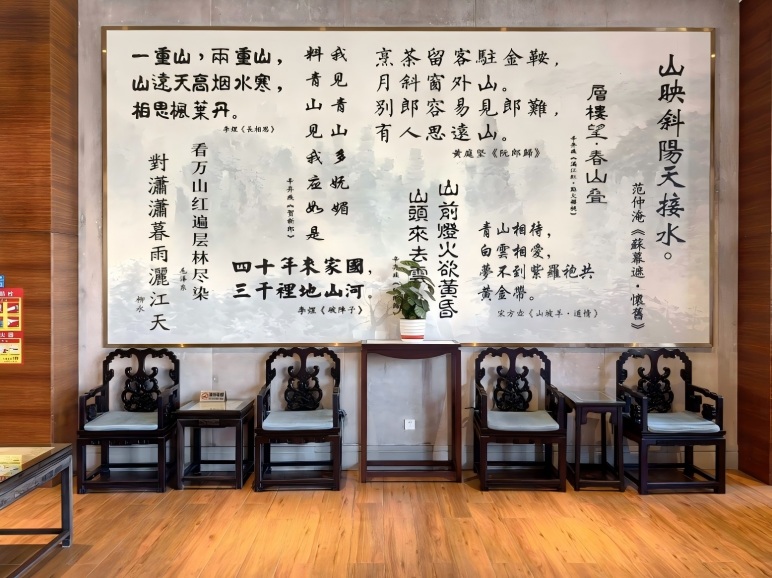 一重山，兩重山，
山遠天高烟水寒，
相思楓葉丹。
李煜《長相思》
對瀟瀟暮雨灑江天
柳永
看万山红遍层林尽染
毛泽东
我见青山多妩媚
料青山见我应如是
辛弃疾《贺新郎》
四十年来家國，
三千裡地山河。
李煜《破陣子》
烹茶留客駐金鞍，
月斜窗外山。
別郎容易見郎難，
有人思遠山。
黃庭堅《阮郎歸》
山前燈火欲黃昏
山頭來去雲
辛弃疾
層樓望·春山叠
辛弃疾《滿江紅·點火櫻桃》
青山相待，
白雲相愛，
夢不到紫羅袍共
黃金帶。
宋方壺《山坡羊·道情》
山映斜陽天接水。
范仲淹《蘇幕遮·懷舊》